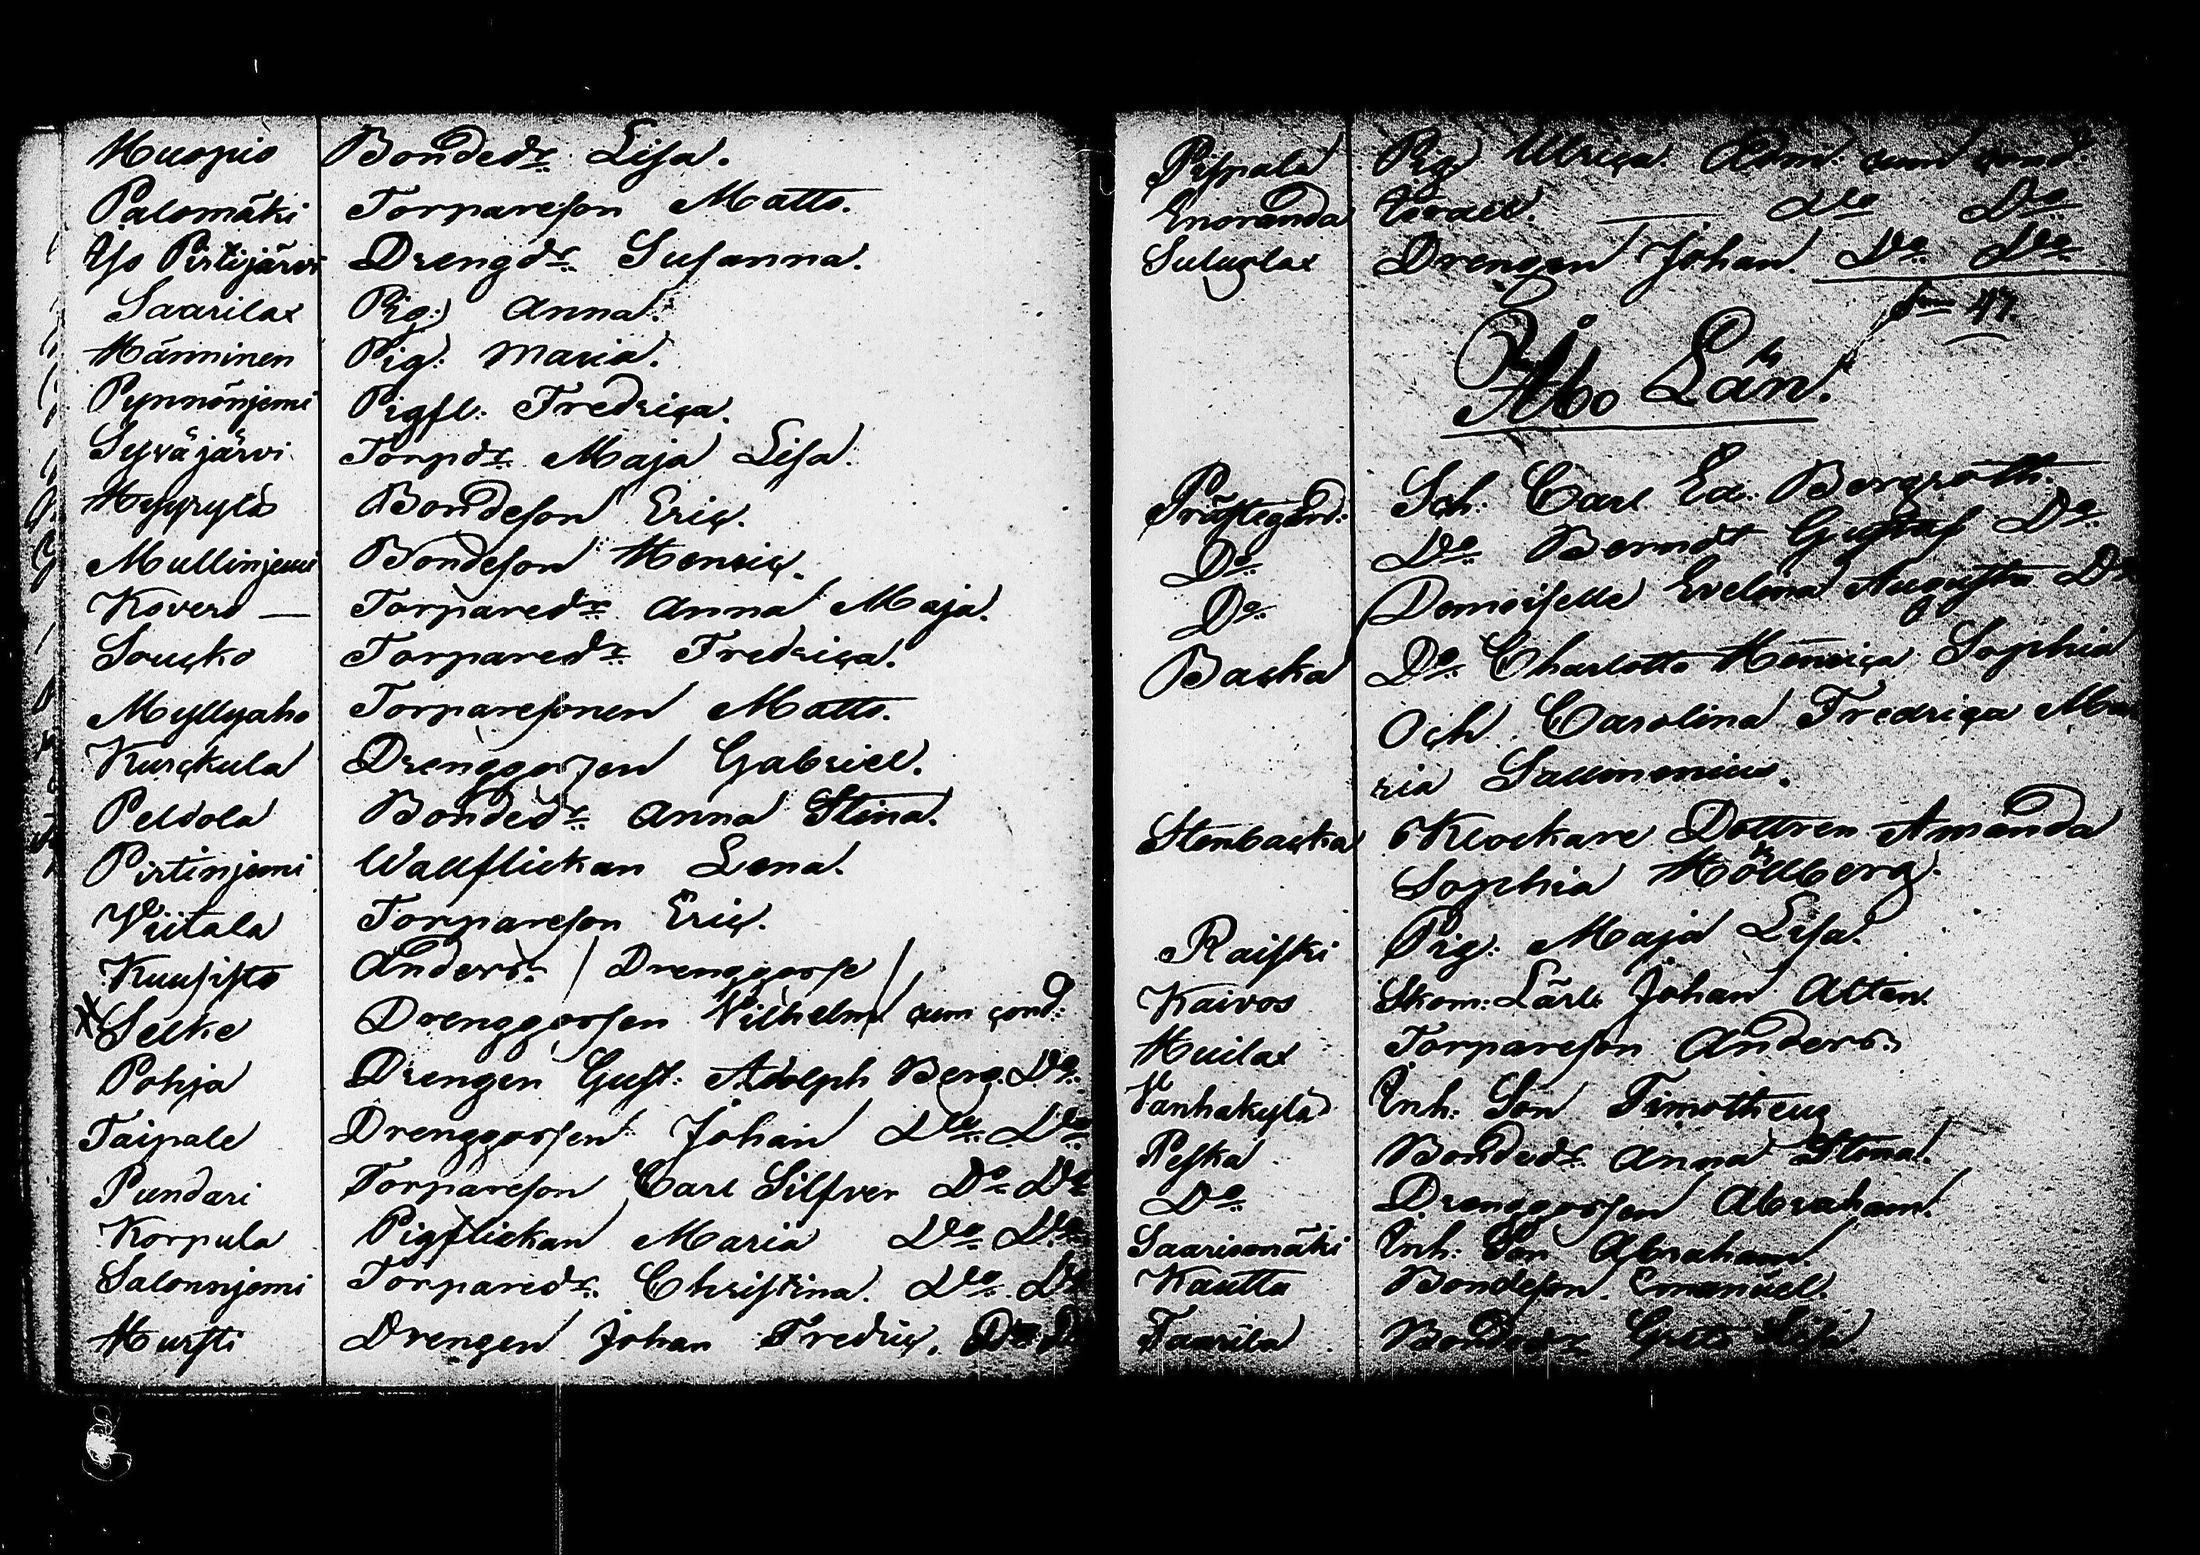 Huopio Bondedr. Lisa.
Palomäki Torpareson Matts.
Yso Pirtijärvi Drengdr. Susanna.
Saarilax Pig: Anna.
Hänninen Pig: Maria.
Pynnönjemi Pigfl: Fredrica.
Syväjärvi Torpdr. Maja Lisa.
Hyyrylä Bondeson Eric.
Mullinjemi Bondeson Henric.
Kovero — Torparedr. Anna Maja.
Soucko Torparedr. Fredrica.
Myllyaho Torparesonen Matts.
Kurckula Drenggossen Gabriel.
Peldola Bondedr. Anna Stina.
Pirtinjemi Wallflickan Lena.
Viitala Torpareson Eric.
Kuusisto Anders. / Drenggosse /
Selke Drenggossen Vilhelm cum cond:
Pohja Drengen Gust: Adolph Berg. Do.
Taipale Drenggossen Johan Do. Do
Pundari Torpareson Carl Silfver Do. Do
Korpula Pigflickan Maria Do. Do.
Salonnjemi Torparedr. Christina. Do. Do
Hursti Drengen Johan Fredric. Do
Pispala Pig Ulrica. Adm: cum cond:
Enoranda Israel. — Do Do
Suluslax Drengen Johan. Do Do
47.
Åbo Län.
Prästegård: Sch: Carl Ed: Bergroth.
Do. Do Berndt Gustaf Do.
Do. Demoiselle Evelina Augusta Do
Backa Do. Charlotta Henrica Sophia
Och Carolina Fredrica Ma
ria Sallmenius.
Stenbacka Klockare Dottren Amanda
Sophia Höllberg.
Raiski Pig: Maja Lisa.
Kaivos Skom: Lärl: Johan Alten.
Huilax Torpareson Anders.
Vanhakylä Inh: Son Timotheus
Peska Bondedr. Anna Stina.
Do. Drenggossen Abraham.
Saarisomäki Inh: Son Abraham.
Kautta Bondeson. Emanuel.
Taarila Bondedr. Greta Lisa.